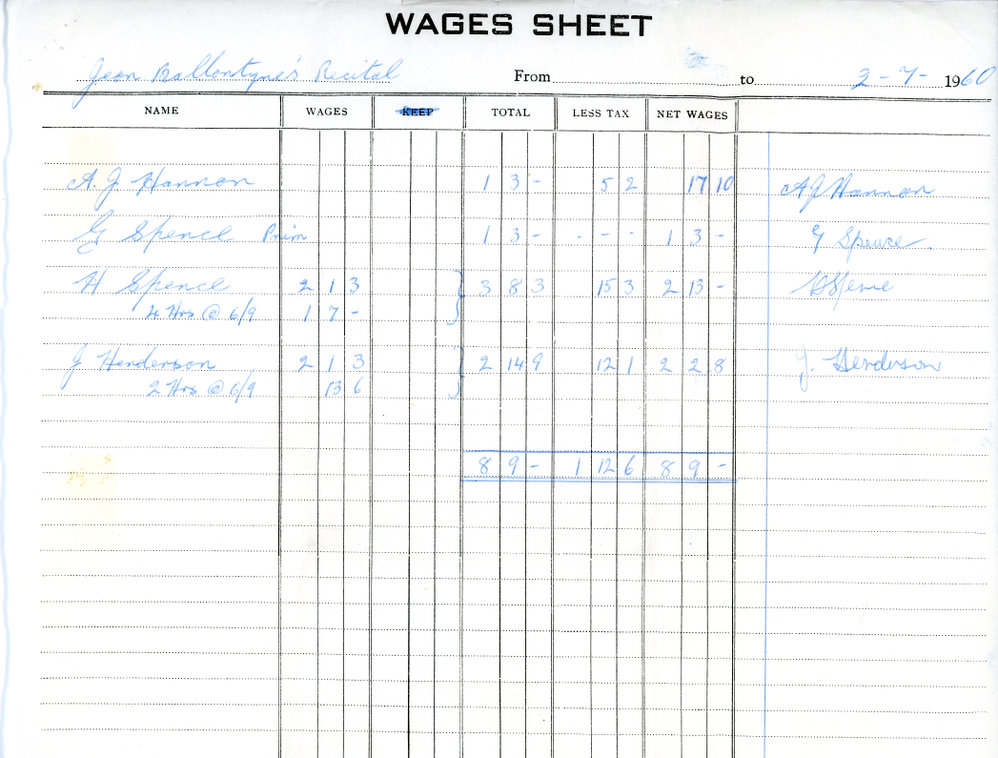 WAGES SHEET
Jean Ballantyne's Recital From to 2-7-1960
NAME WAGES KEEP TOTAL LESS TAX NET WAGES
A. J. Hannon 1 3 - 5 2 17 10 AJ Hannon
G Spence Prim 1 3 - - - - 1 3 - G Spence.
H Spence 2 1 3 3 8 3 15 3 2 13 -
4 Hrs @ 6/9 1 7 -
J Henderson 2 1 3 2 14 9 12 1 2 2 8 J. Henderson
2 Hrs @ 6/9 13 6
8 9 - 1 12 6 8 9 -